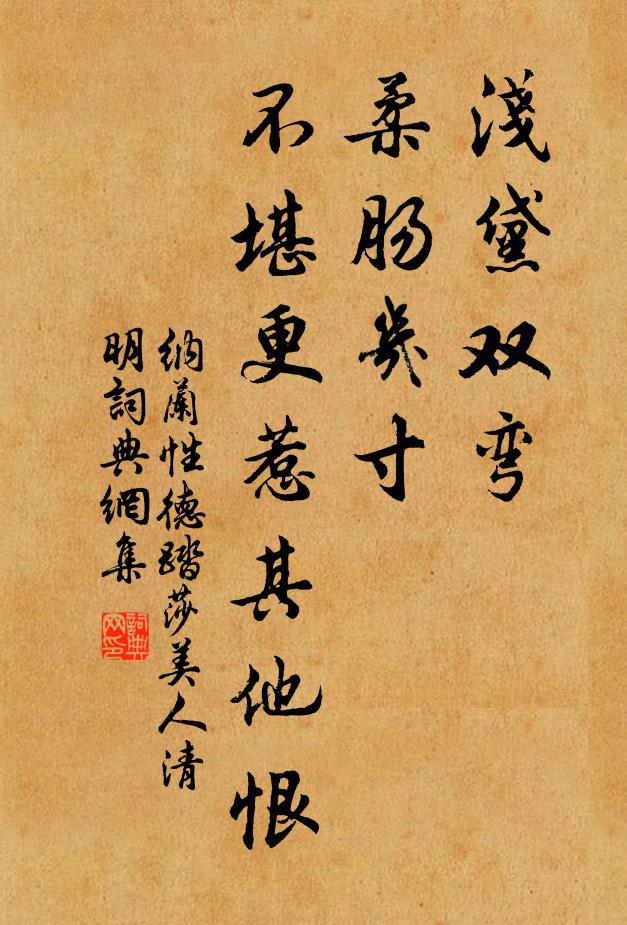 淺黛双弯
柔肠幾寸
不堪更惹其他恨
纳蘭性德踏莎美人清
明詞典網集
詞典网印